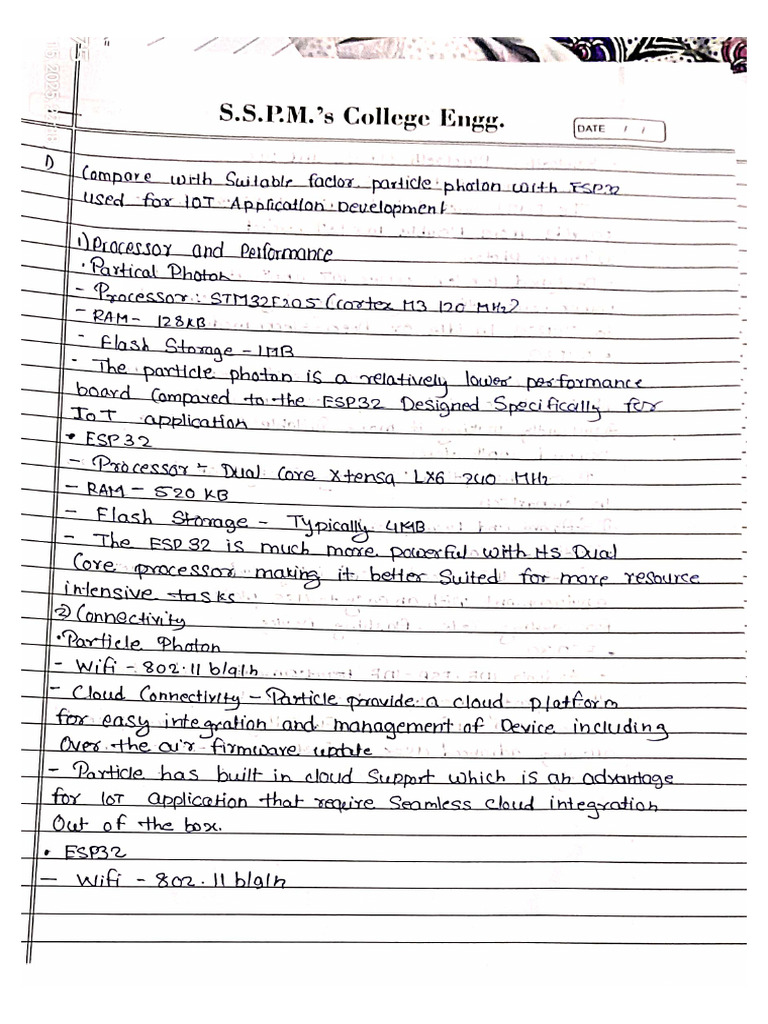 S.S.P.M.'s College Engg.
DATE / /
1)
Compare with Suitable factor particle photon with ESP32
used for IOT Application Development
1) Processor and Performance
• Partical Photon
- Processor : STM32F205 (Cortex M3 120 MHz)
- RAM - 128KB
- Flash Storage - 1MB
- The particle photon is a relatively lower performance
board compared to the ESP32 Designed Specifically for
IoT application
• ESP32
- Processor - Dual Core Xtensa LX6 240 MHz
- RAM - 520 KB
- Flash Storage - Typically 4MB
- The ESP32 is much more powerful with its Dual
Core processor making it better Suited for more resource
intensive tasks
2) Connectivity
• Particle Photon
- Wifi - 802.11 b/g/n
- Cloud Connectivity - Particle provide a cloud platform
for easy integration and management of Device including
Over the air firmware update
- Particle has built in cloud Support which is an advantage
for IoT application that require Seamless Cloud integration
Out of the box.
• ESP32
- Wifi - 802.11 b/g/n